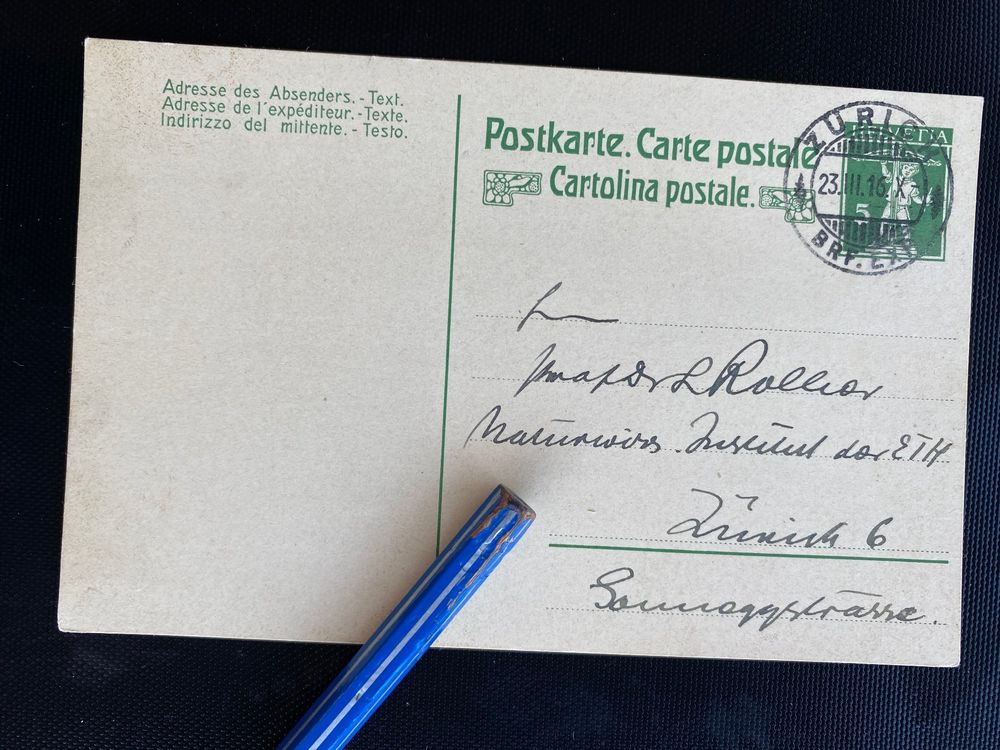 Adresse des Absenders. - Text.
Adresse de l'expéditeur. - Texte.
Indirizzo del mittente. - Testo.
Postkarte. Carte postale
Cartolina postale.
ZÜRICH
HELVETIA
23.III.16.X-
5
BRF.
Prof Dr L Rollier
Naturwiss. Institut der ETH
Zürich 6
Sonneggstrasse.